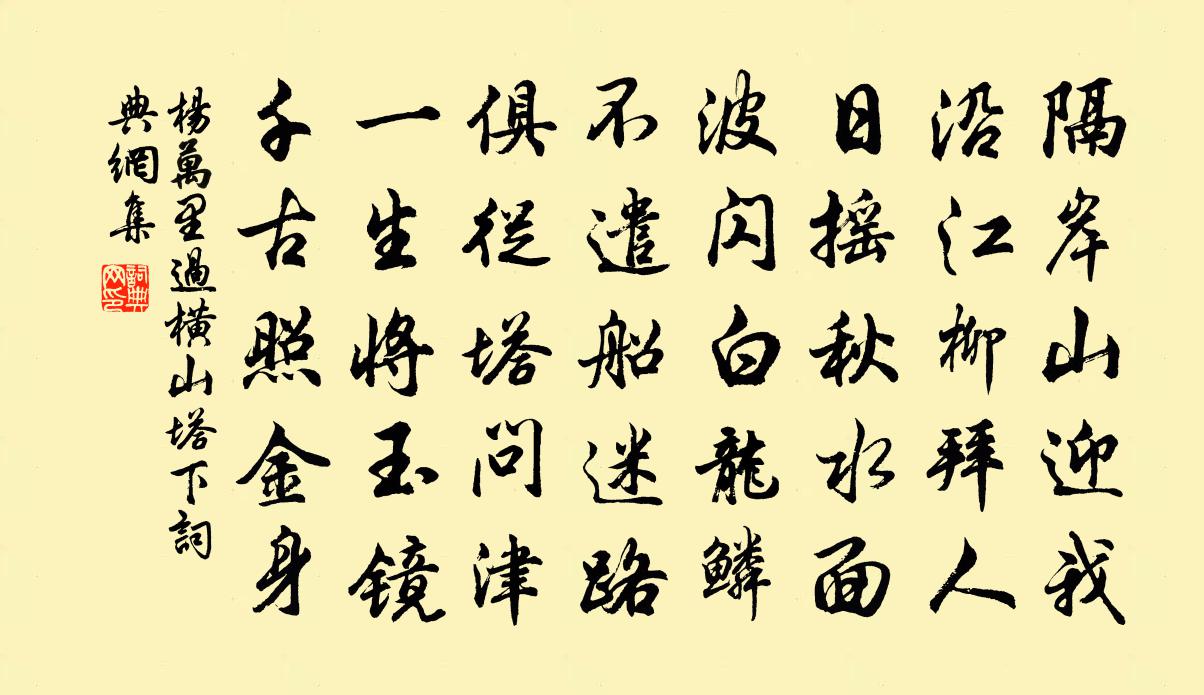 隔岸山迎我
沿江柳拜人
日摇秋水面
波闪白龍鳞
不遣船迷路
俱從塔問津
一生將玉鏡
千古照金身
楊萬里過橫山塔下詞
典網集
詞典
网印